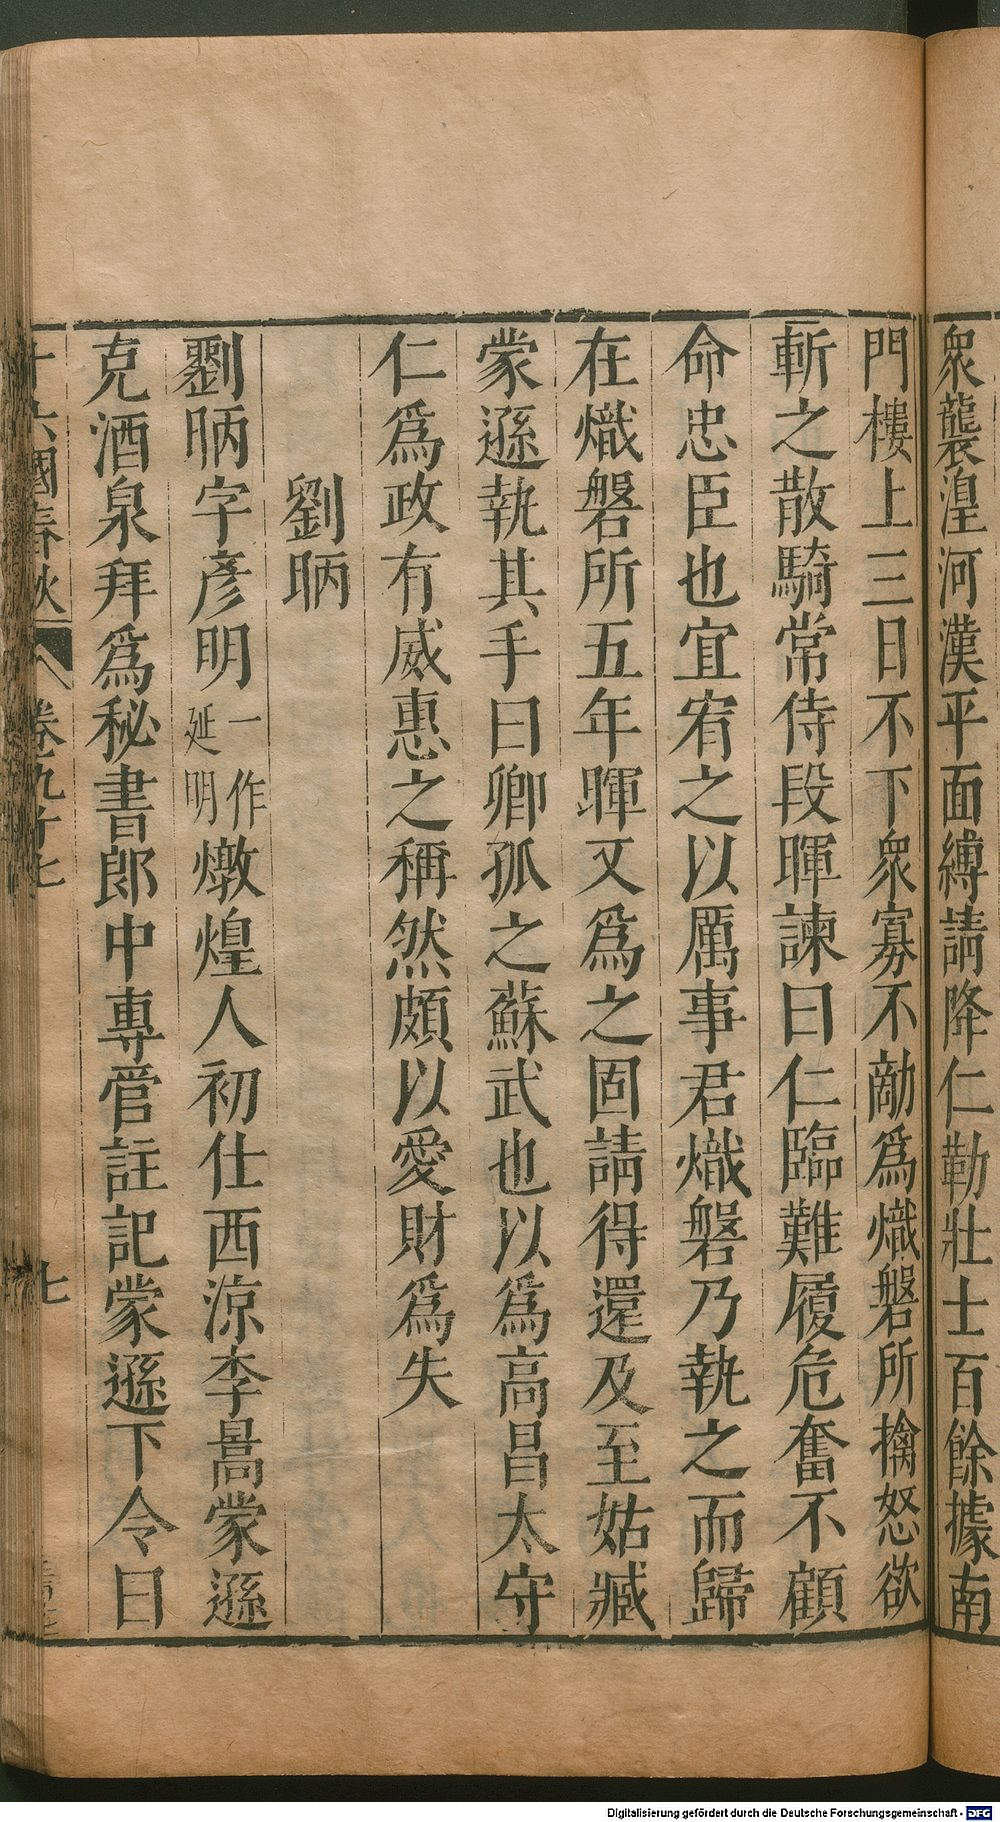 衆襲湟河漢平面縛請降仁勒壯士百餘據南
門樓上三日不下衆寡不敵爲熾磐所擒怒欲
斬之散騎常侍段暉諫曰仁臨難履危奮不顧
命忠臣也宜宥之以厲事君熾磐乃執之而歸
在熾磐所五年暉又爲之固請得還及至姑臧
蒙遜執其手曰卿孤之蘇武也以爲高昌太守
仁爲政有威惠之稱然頗以愛財爲失
劉昞
劉昞字彥明一作延明燉煌人初仕西涼李暠蒙遜
克酒泉拜爲秘書郎中專管註記蒙遜下令曰
十六國春秋 卷九十七 七
Digitalisierung gefördert durch die Deutsche Forschungsgemeinschaft - DFG